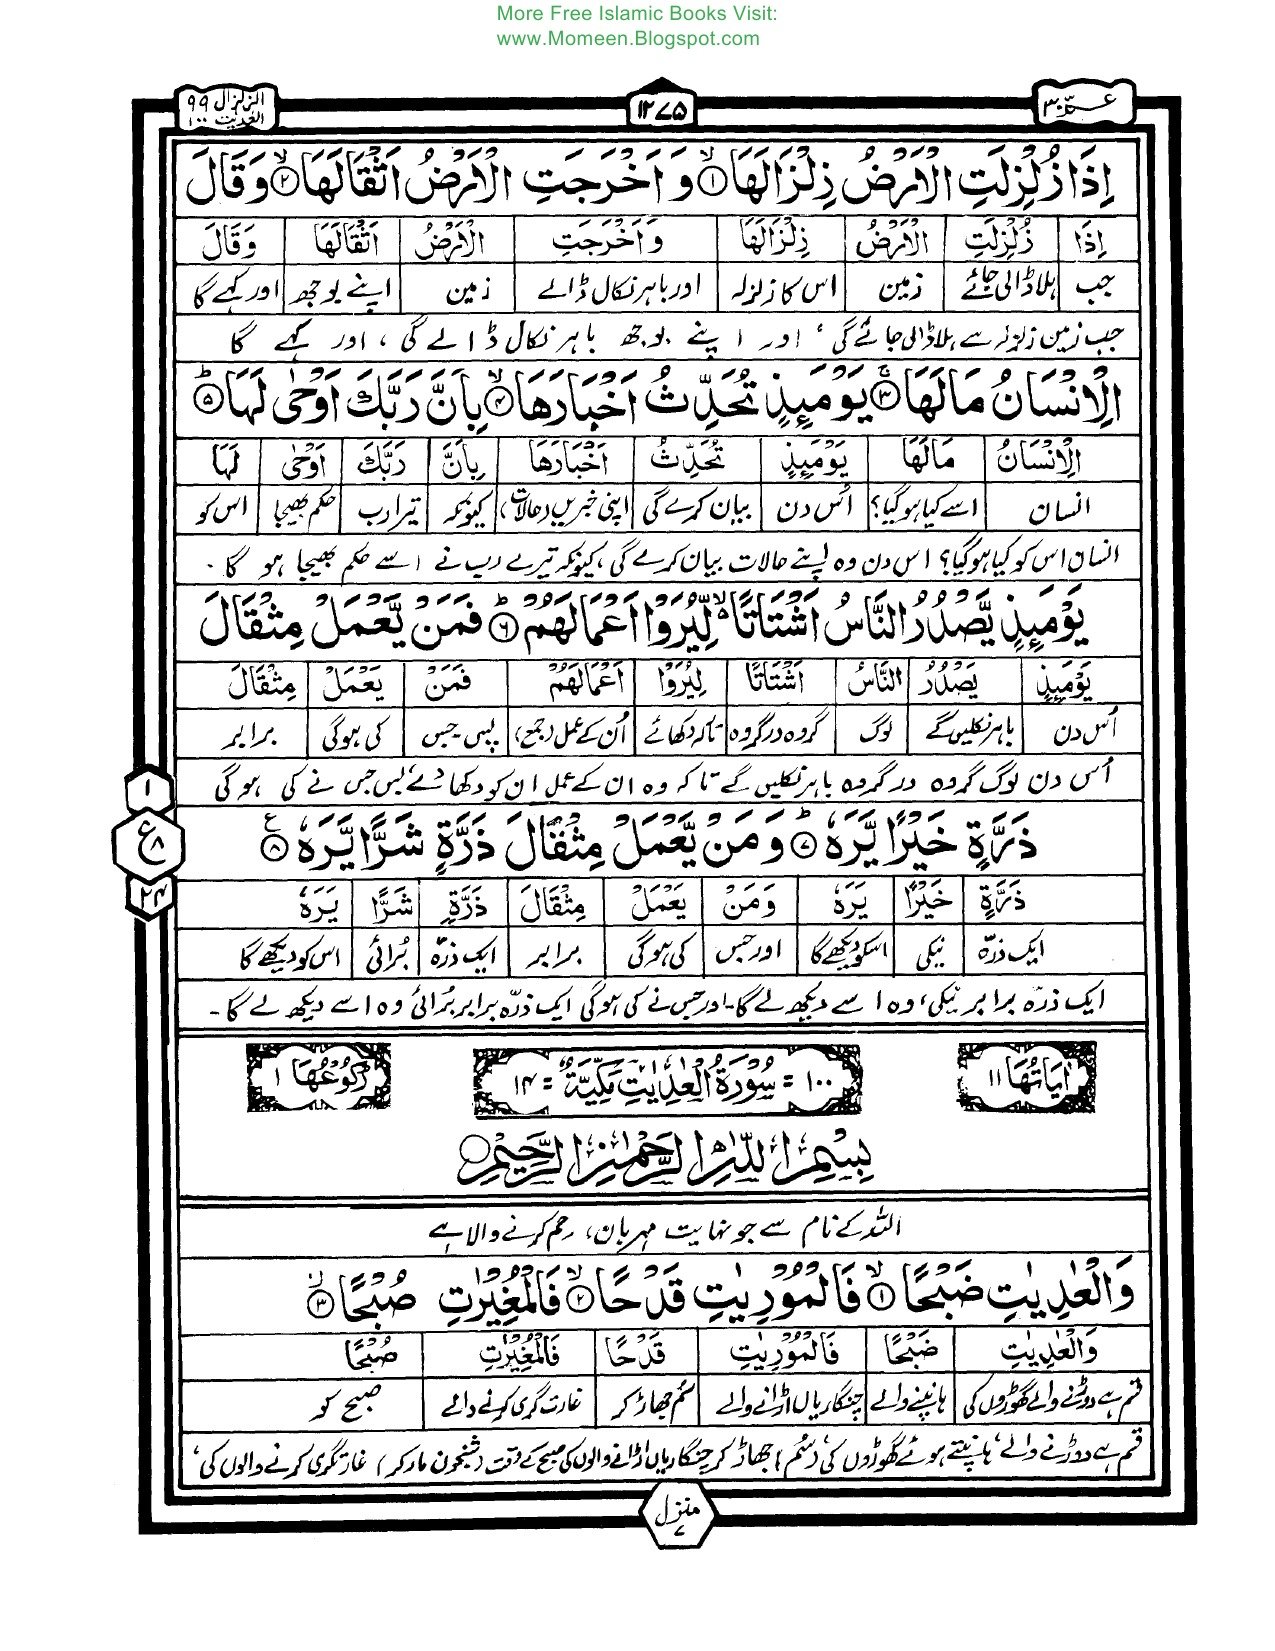 More Free Islamic Books Visit:
www.Momeen.Blogspot.com
عمّ ۳۰
۱۲۷۵
الزلزال ۹۹
العٰدیٰت ۱۰۰
اِذَا زُلْزِلَتِ الْاَرْضُ زِلْزَالَهَا ۙ۱ وَاَخْرَجَتِ الْاَرْضُ اَثْقَالَهَا ۙ۲ وَقَالَ
اِذَا زُلْزِلَتِ الْاَرْضُ زِلْزَالَهَا وَاَخْرَجَتِ الْاَرْضُ اَثْقَالَهَا وَقَالَ
جب ہلا ڈالی جائے زمین اس کا زلزلہ اور باہر نکال ڈالے زمین اپنے بوجھ اور کہے گا
جب زمین زلزلہ سے ہلا ڈالی جائے گی، اور اپنے بوجھ باہر نکال ڈالے گی، اور کہے گا
الْاِنْسَانُ مَا لَهَا ۚ۳ يَوْمَئِذٍ تُحَدِّثُ اَخْبَارَهَا ۙ۴ بِاَنَّ رَبَّكَ اَوْحٰى لَهَا ؕ۵
الْاِنْسَانُ مَا لَهَا يَوْمَئِذٍ تُحَدِّثُ اَخْبَارَهَا بِاَنَّ رَبَّكَ اَوْحٰى لَهَا
انسان اسے کیا ہو گیا؟ اُس دن بیان کرے گی اپنی خبریں (حالات) کیونکہ تیرا رب حکم بھیجا اس کو
انسان اس کو کیا ہو گیا؟ اس دن وہ اپنے حالات بیان کرے گی، کیونکہ تیرے رب نے اسے حکم بھیجا ہو گا۔
يَوْمَئِذٍ يَّصْدُرُ النَّاسُ اَشْتَاتًا ۙ۬ لِّيُرَوْا اَعْمَالَهُمْ ؕ۶ فَمَنْ يَّعْمَلْ مِثْقَالَ
يَوْمَئِذٍ يَصْدُرُ النَّاسُ اَشْتَاتًا لِيُرَوْا اَعْمَالَهُمْ فَمَنْ يَعْمَلْ مِثْقَالَ
اُس دن باہر نکلیں گے لوگ گروہ در گروہ تاکہ دکھائے اُن کے عمل (جمع) پس جس کی ہو گی برابر
اُس دن لوگ گروہ در گروہ باہر نکلیں گے تاکہ وہ ان کے عمل ان کو دکھا دے پس جس نے کی ہو گی
۱
ع ۸
۲۴
ذَرَّةٍ خَيْرًا يَّرَهٗ ؕ۷ وَمَنْ يَّعْمَلْ مِثْقَالَ ذَرَّةٍ شَرًّا يَّرَهٗ ۸
ذَرَّةٍ خَيْرًا يَرَهٗ وَمَنْ يَعْمَلْ مِثْقَالَ ذَرَّةٍ شَرًّا يَرَهٗ
ایک ذرّہ نیکی اسکو دیکھے گا اور جس کی ہو گی برابر ایک ذرّہ بُرائی اس کو دیکھے گا
ایک ذرّہ برابر نیکی، وہ اسے دیکھ لے گا۔ اور جس نے کی ہو گی ایک ذرّہ برابر بُرائی وہ اسے دیکھ لے گا۔
اٰيَاتُهَا ۱۱
۱۰۰ = سُوْرَةُ الْعٰدِيٰتِ مَكِّيَّةٌ = ۱۴
رُكُوْعُهَا ۱
بِسْمِ اللّٰهِ الرَّحْمٰنِ الرَّحِيْمِ
اللّٰہ کے نام سے جو نہایت مہربان، رحم کرنے والا ہے
وَالْعٰدِيٰتِ ضَبْحًا ۙ۱ فَالْمُوْرِيٰتِ قَدْحًا ۙ۲ فَالْمُغِيْرٰتِ صُبْحًا ۙ۳
وَالْعٰدِيٰتِ ضَبْحًا فَالْمُوْرِيٰتِ قَدْحًا فَالْمُغِيْرٰتِ صُبْحًا
قسم ہے دوڑنے والے گھوڑوں کی ہانپنے والے چنگاریاں اڑانے والے سُم جھاڑ کر غارت گری کرنے والے صبح کو
قسم ہے دوڑنے والے، ہانپتے ہوئے گھوڑوں کی (سُم) جھاڑ کر چنگاریاں اڑانے والوں کی صبح کے وقت (شبخون مار کر) غارتگری کرنے والوں کی،
منزل ۷